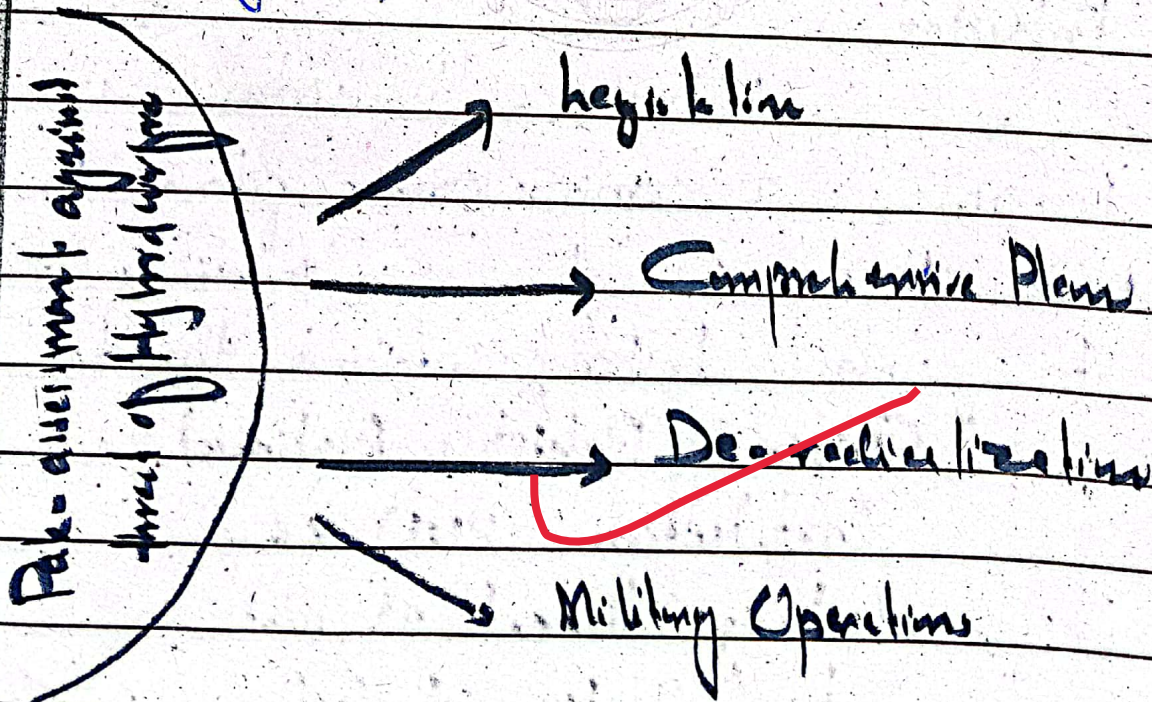 Pak- against
threat of Hybrid warfare
Legislation
Comprehensive Plans
De-radicalization
Military Operations